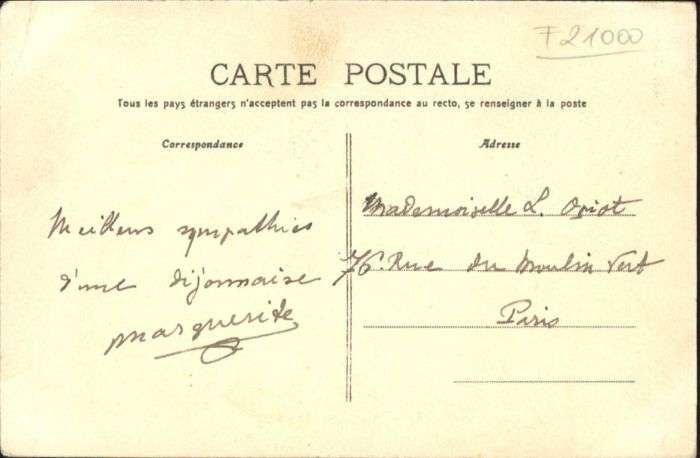 F 21000
CARTE POSTALE
Tous les pays étrangers n'acceptent pas la correspondance au recto, se renseigner à la poste
Correspondance
Adresse
Meilleurs sympathies
d'une dijonnaise
Marguerite
Mademoiselle L. Oriot
76. Rue du Moulin Vert
Paris